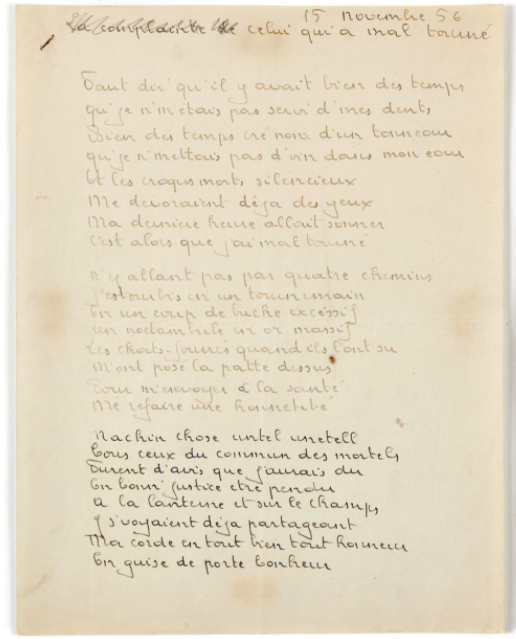 15 novembre 56
La complainte de celui qui a mal tourné
Faut dir' qu'il y avait bien des temps
qu'je n'm'étais pas servi d'mes dents
Bien des temps cré nom d'un tonneau
qu'je n'mettais pas d'vin dans mon eau
Et les croqu'morts silencieux
Me devoraient déja des yeux
Ma dernière heure allait sonner
C'est alors que j'ai mal tourné
N'y allant pas par quatre chemins
J'estourbis en un tournemain
En un coup de buche excéssif
un noctambule en or massif
Les chats-fourrés quand ils l'ont su
M'ont posé la patte dessus
Pour m'envoyer à la santé
Me refaire une honnetteté
Machin chose untel unetell
Tous ceux du commun des mortels
Furent d'avis que j'aurais du
En bonn' justice etre pendu
A la lanterne et sur le champ,
Y s'voyaient déja partageant
Ma corde en tout bien tout honneur
En guise de porte bonheur